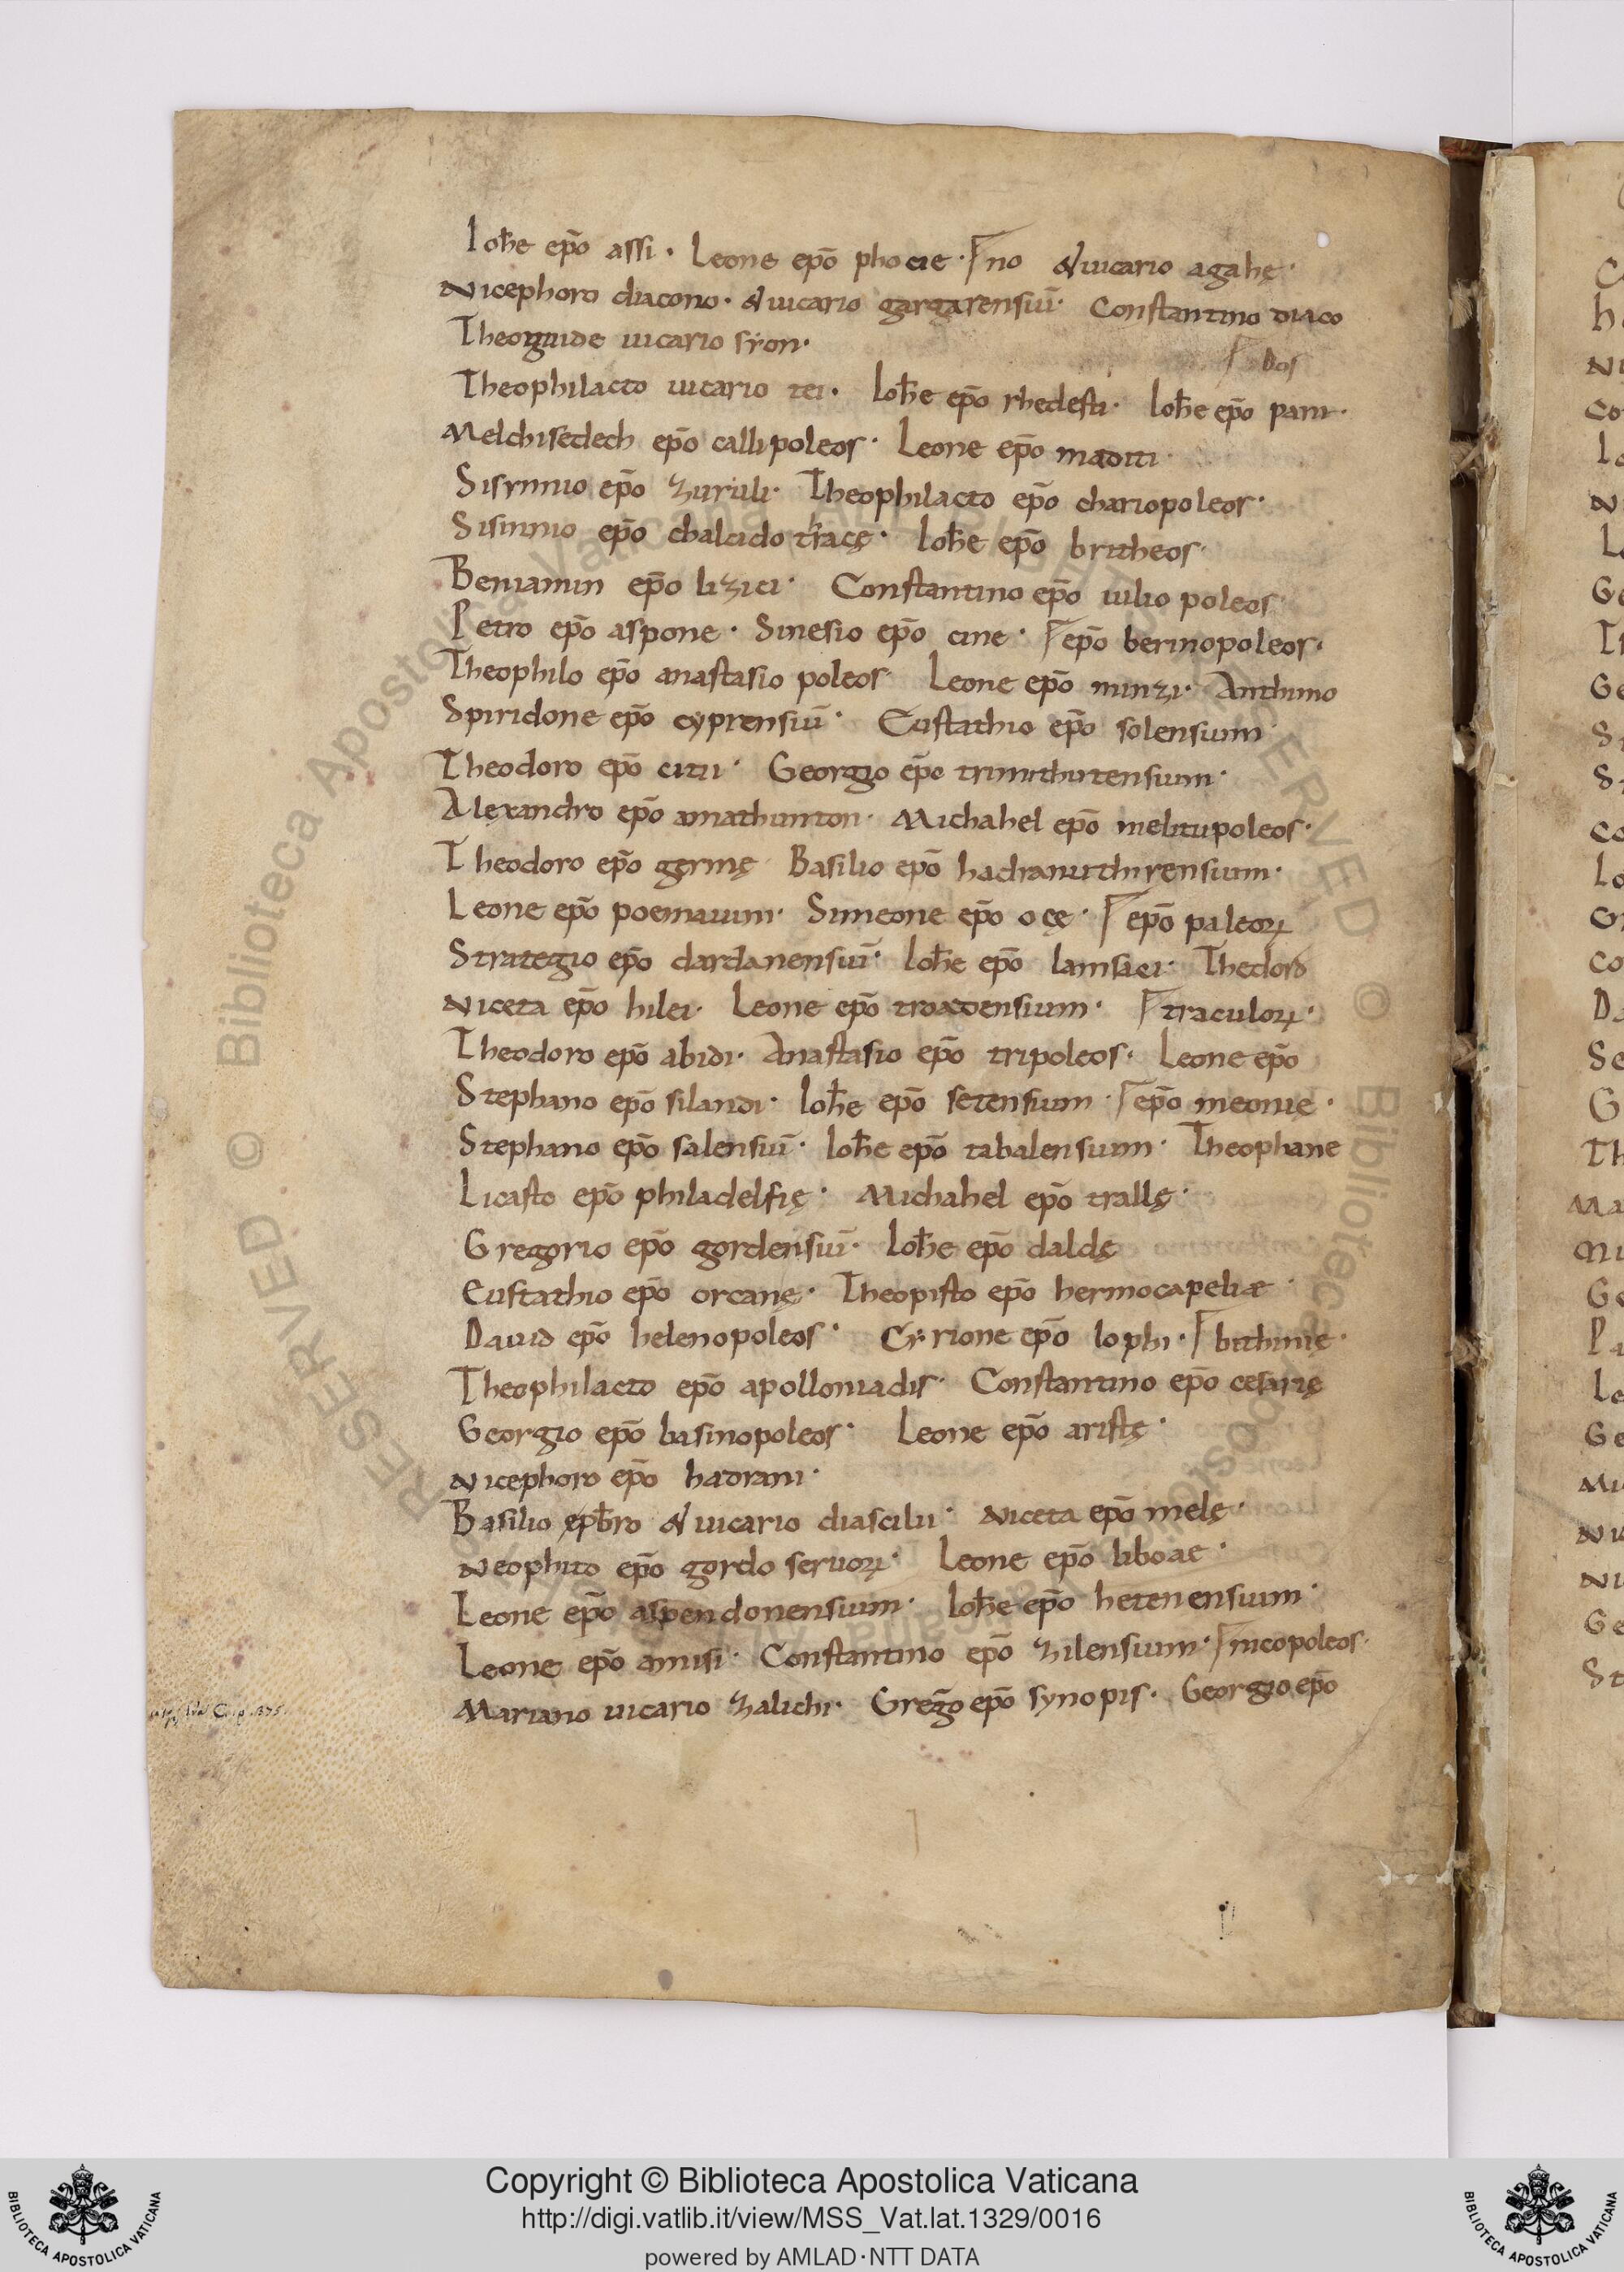 Ioh̅e ep̅o assi · Leone ep̅o phocie · no & uicario agahę ·
Nicephoro diacono · & uicario gargarensiu̅ · Constantino diaco
Theognide uicario syon ·
dos
Theophilacto uicario tei · Ioh̅e ep̅o rhedesti · Ioh̅e ep̅o pani ·
Melchisedech ep̅o callipoleos · Leone ep̅o maditi ·
Sisynnio ep̅o zuruli · Theophilacto ep̅o chariopoleos ·
Sisinnio ep̅o chalcido tracę · Ioh̅e ep̅o britheos ·
Beniamin ep̅o lizici · Constantino ep̅o iulio poleos ·
Petro ep̅o aspone · Sinesio ep̅o cine · ep̅o berinopoleos ·
Theophilo ep̅o anastasio poleos · Leone ep̅o minzi · Anthimo
Spiridone ep̅o cyprensiu̅ · Eustathio ep̅o solensium ·
Theodoro ep̅o citii · Georgio ep̅o trimithutensium ·
Alexandro ep̅o amathunton · Michahel ep̅o melitupoleos ·
Theodoro ep̅o germę · Basilio ep̅o hadranuthirensium ·
Leone ep̅o poemauum · Simeone ep̅o ocę · ep̅o paleoꝝ
Strategio ep̅o dardanensiu̅ · Ioh̅e ep̅o lamsaci · Thedoro
Niceta ep̅o hilei · Leone ep̅o troadensium · traculoꝝ ·
Theodoro ep̅o abidi · Anastasio ep̅o tripoleos · Leone ep̅o
Stephano ep̅o silandi · Ioh̅e ep̅o setensium · ep̅o meonię ·
Stephano ep̅o salensiu̅ · Ioh̅e ep̅o tabalensium · Theophane
Licasto ep̅o philadelfię · Michahel ep̅o trallę ·
Gregorio ep̅o gordensiu̅ · Ioh̅e ep̅o daldę
Eustathio ep̅o orcanę · Theopisto ep̅o hermocapeliæ ·
Dauid ep̅o helenopoleos · Cyrione ep̅o lophi · bithinię ·
Theophilacto ep̅o apolloniadis · Constantino ep̅o cesarię
Georgio ep̅o basinopoleos · Leone ep̅o aristę ·
Nicephoro ep̅o hadrani ·
Basilio p̅bro & uicario diascilii · Niceta ep̅o melę ·
Neophito ep̅o gordo seruoꝝ · Leone ep̅o liboae ·
Leone ep̅o aspendonensium · Ioh̅e ep̅o hetenensium ·
Leone ep̅o amisi · Constantino ep̅o zilensium · nicopoleos ·
Mariano uicario zalichi · Greg̅o ep̅o synopis · Georgio ep̅o
Copyright © Biblioteca Apostolica Vaticana
http://digi.vatlib.it/view/MSS_Vat.lat.1329/0016
powered by AMLAD·NTT DATA
BIBLIOTECA APOSTOLICA VATICANA
BIBLIOTECA APOSTOLICA VATICANA